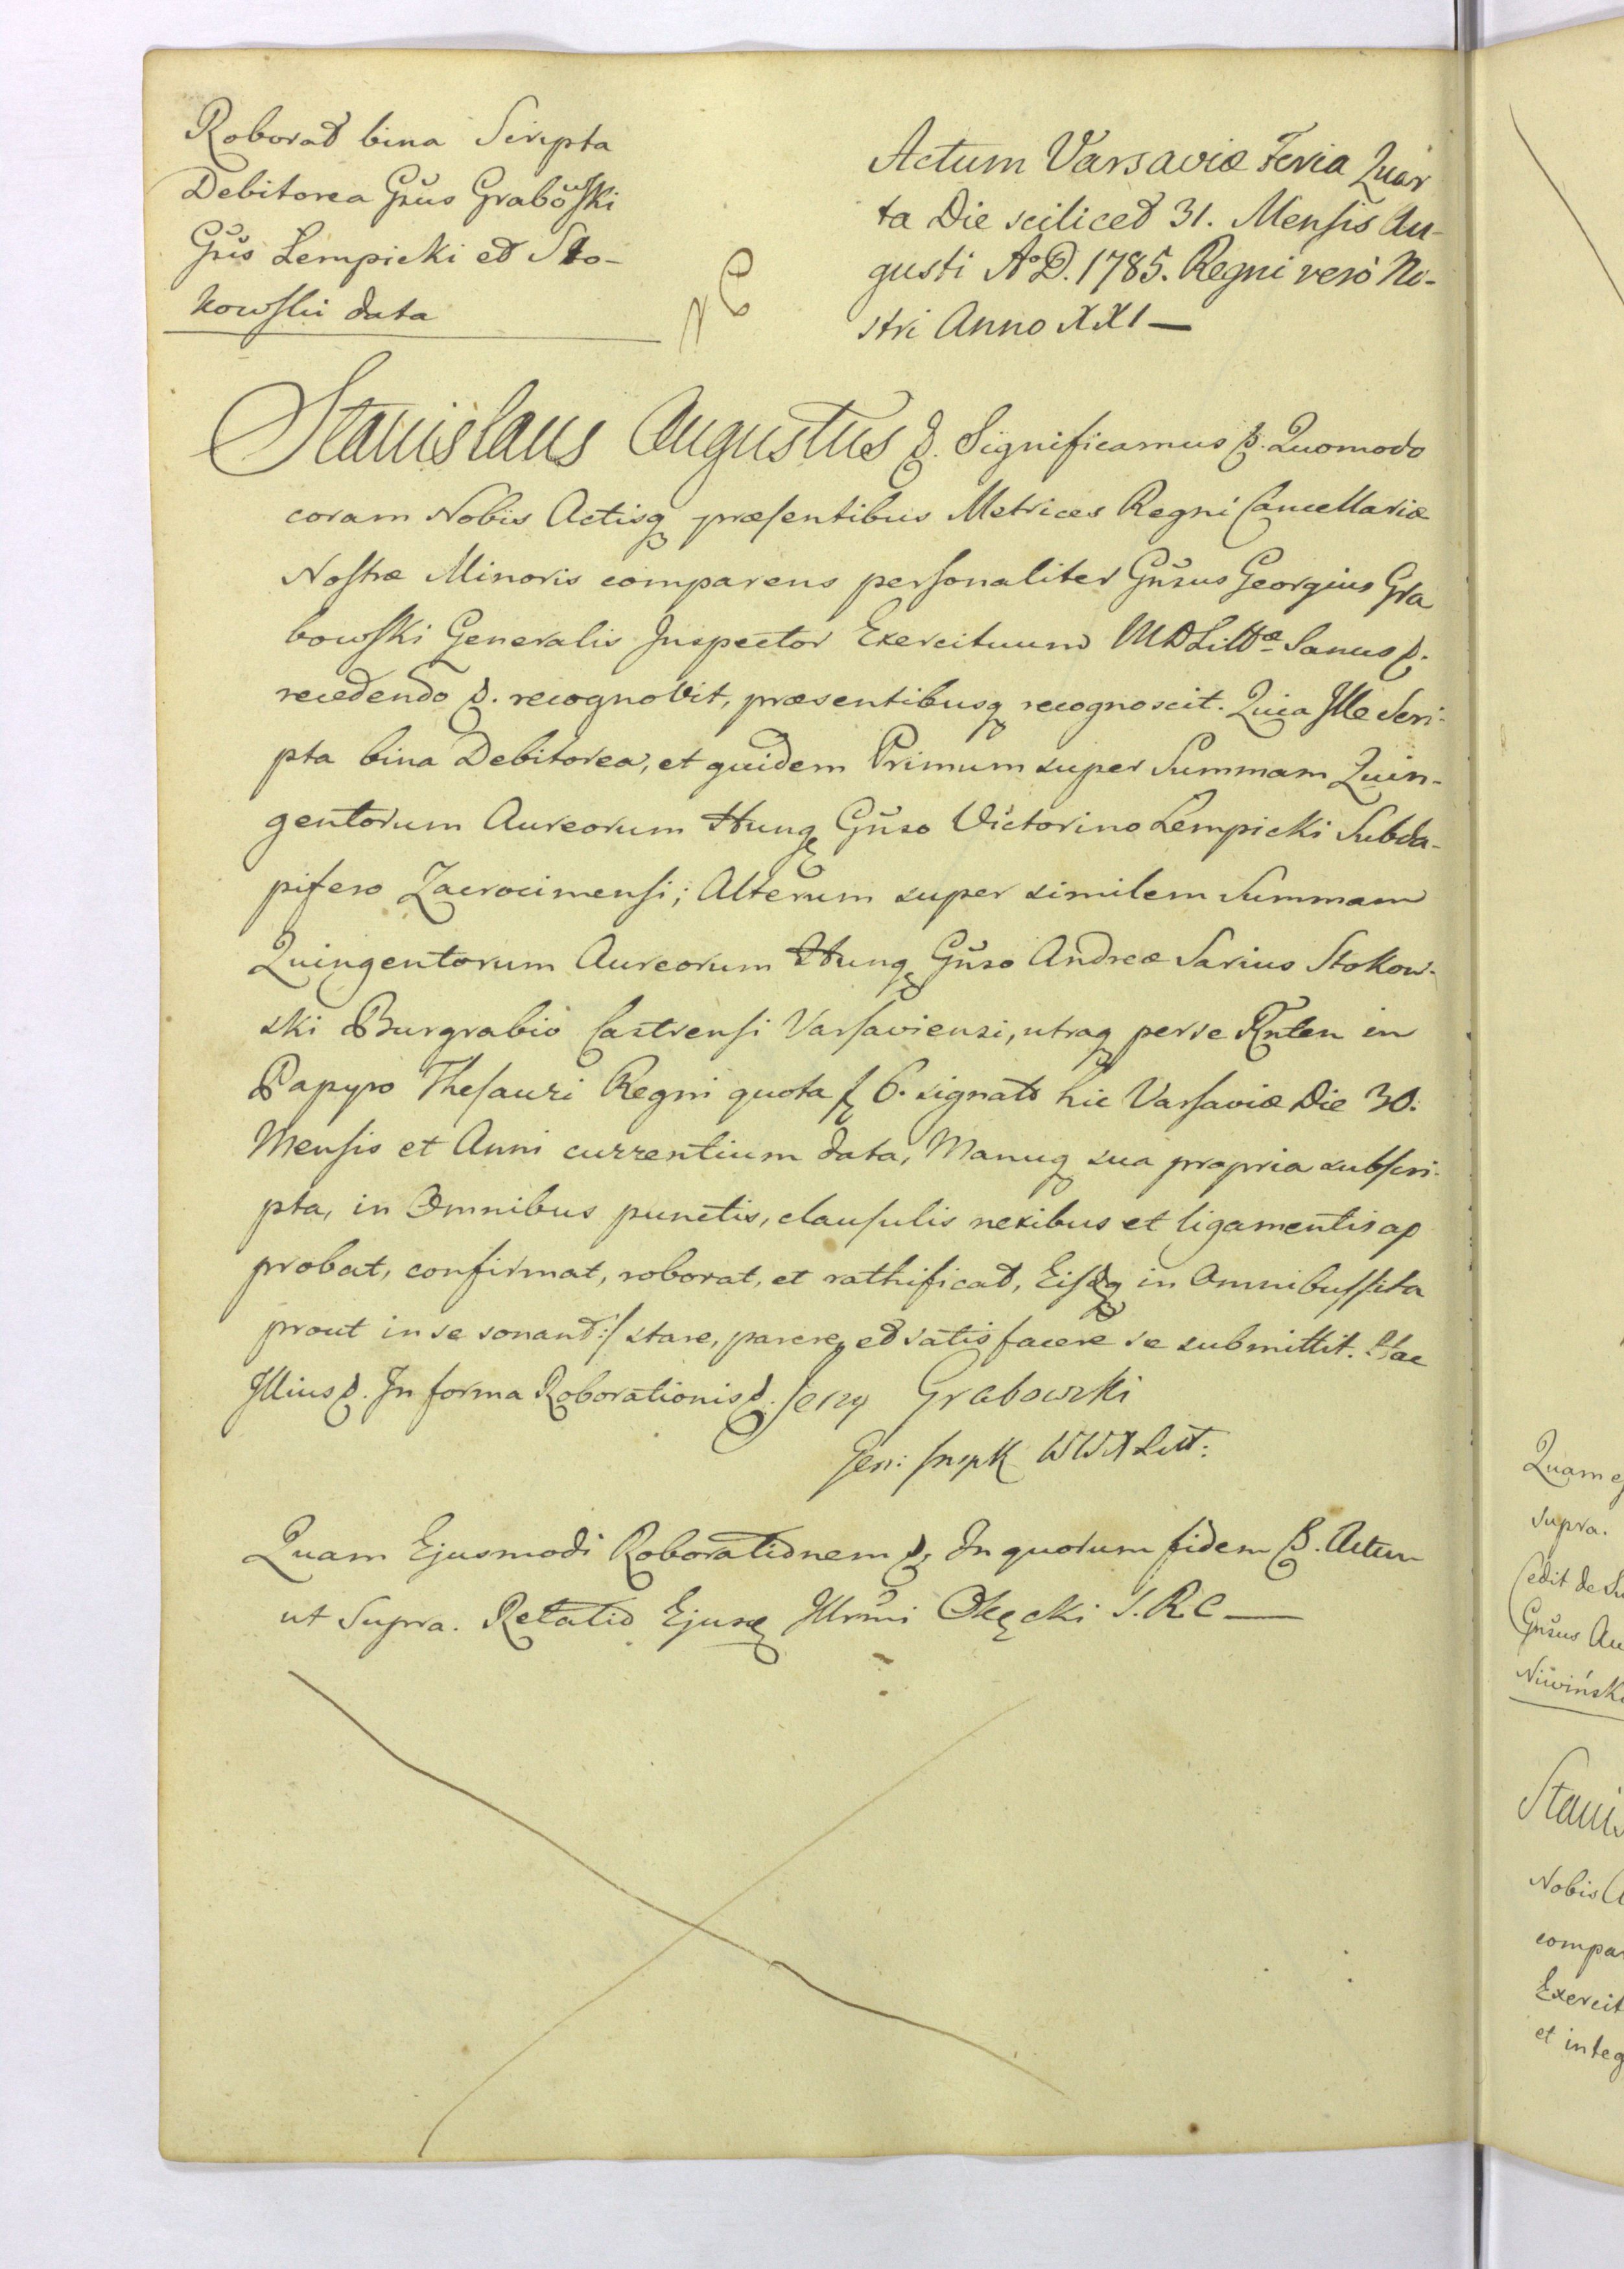 Roborat bina Scripta
Debitorea Gnsus Grabowski
Gnsis Lempicki et Sto-
kowski data
Actum Varsaviæ Feria Quar
ta Die scilicet 31. Mensis Au-
gusti Aº D. 1785. Regni verò No-
stri Anno XXI —
Stanislaus Augustus &. Significamus &. Quomodo
coram Nobis Actisq præsentibus Metrices Regni Cancellariæ
Nostræ Minoris comparens personaliter Gnsus Georgius Gra
bowski Generalis Inspector Exercituum MDLittæ Sanus &.
recedendo &. recognovit, præsentibusq recognoscit. Quia Ille Scri-
pta bina Debitorea, et quidem Primum super Summam Quin-
gentorum Aureorum Hung Gnso Victorino Lempicki Subda-
pifero Zacrocimensi; Alterum super similem Summam
Quingentorum Aureorum Hung Gnso Andreæ Sarius Stokow-
ski Burgrabio Castrensi Varsaviensi, utraq per se Rnten in
Papyro Thesauri Regni quota f 6. signato hic Varsaviæ Die 30.
Mensis et Anni currentium data, Manuq sua propria subscri-
pta, in Omnibus punctis, clausulis nexibus et ligamentis ap
probat, confirmat, roborat, et rathificat, Eisdq in Omnibus /:ita
prout in se sonant:/ stare, parere, et satisfacere se submittit. Hac
Illius &. In forma Roborationis &. Jerzy Grabowski
Gen: Inspk WWXLitt:
Quam Ejusmodi Roborationem &. In quorum fidem &. Actum
ut Supra. Relatio Ejusd Illrmi Okęcki S. R. C —
Quam
supra.
Cedit de
Gnsus
Niwińsk
Stanis
Nobis
compa
Exercit
et integ